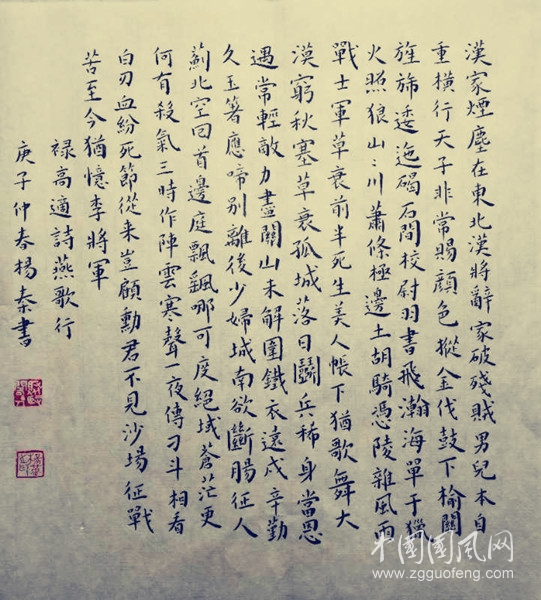 漢家煙塵在東北漢將辭家破殘賊男兒本自
重橫行天子非常賜顏色摐金伐鼓下榆關
旌旆逶迤碣石間校尉羽書飛瀚海單于獵
火照狼山々川蕭條極邊土胡騎憑陵雜風雨
戰士軍草衰前半死生美人帳下猶歌舞大
漠窮秋塞草衰孤城落日鬬兵稀身當恩
遇常輕敵力盡關山未解圍鐵衣遠戍辛勤
久玉箸應啼別離後少婦城南欲斷腸征人
薊北空回首邊庭飄颻哪可度絕域蒼茫更
何有殺氣三時作陣雲寒聲一夜傳刁斗相看
白刃血紛死節從来豈顧勳君不見沙場征戰
苦至今猶憶李將軍
祿高適詩燕歌行
庚子仲春楊秦書
中國國风网
www.zgguofeng.com